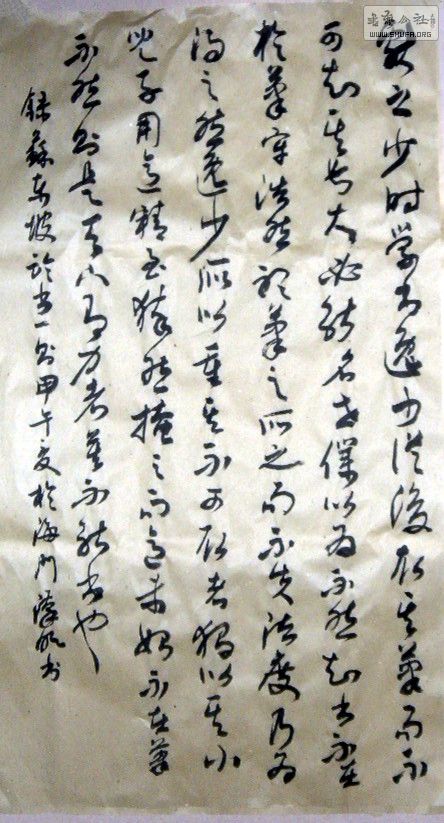 書法公社
WWW.SHUFA.ORG
献之少时学书逸少從後取其筆而不
可知其长大必能名世僕以為不然知书不在
於筆牢浩然聽筆之所之而不失法度乃為
得之然逸少所以重其不可取者独以其小
兒子用意精至猝然掩之而意未始不在筆
不然则是天下有力者莫不能书也
錄蘇東坡於书一则甲午夏於海門书